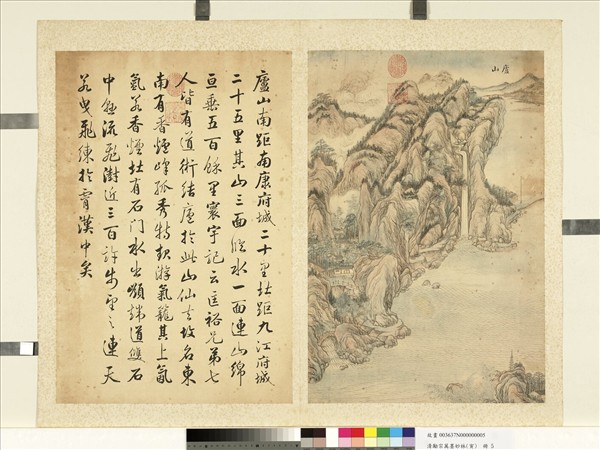 廬山
廬山南距南康府城二十里北距九江府城
二十五里其山三面俯水一面連山綿
亘垂五百餘里寰宇記云匡裕兄弟七
人皆有道術結廬於此山仙去故名東
南有香爐峰孤秀特起游氣籠其上氤
氳若香煙北有石門水出嶺端道雙石
中懸流飛澍近三百許步望之連天
若曳飛練於霄漢中矣
故畫 003637N000000005
清顧宗萬墨妙珠(寅) 冊 5